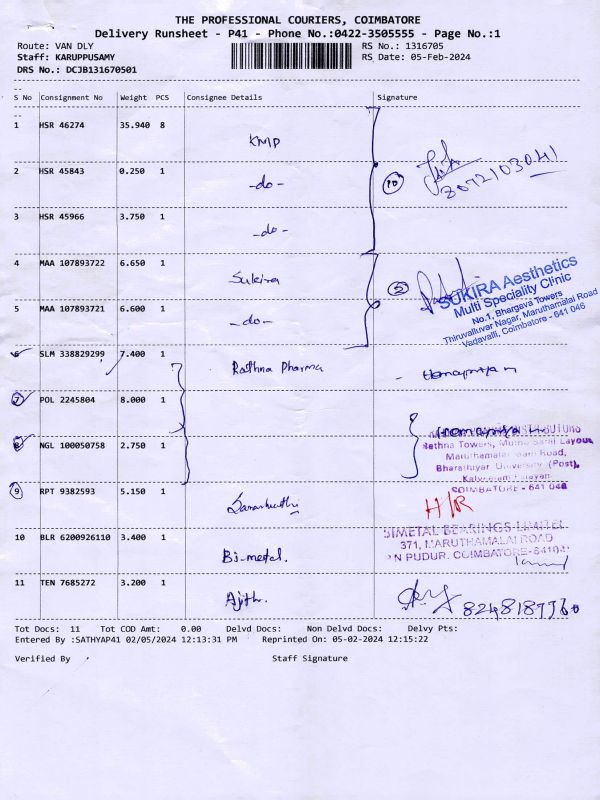 THE PROFESSIONAL COURIERS, COIMBATORE
Delivery Runsheet - P41 - Phone No.:0422-3505555 - Page No.:1
Route: VAN DLY RS No.: 1316705
Staff: KARUPPUSAMY RS Date: 05-Feb-2024
DRS No.: DCJB131670501
S No Consignment No Weight PCS Consignee Details Signature
1 HSR 46274 35.940 8 KMP
2 HSR 45843 0.250 1 -do- 10 8072103041
3 HSR 45966 3.750 1 -do-
4 MAA 107893722 6.650 1 Sukira 5
SUKIRA Aesthetics
Multi Speciality Clinic
No.1, Bhargava Towers
Thiruvalluvar Nagar, Maruthamalai Road
Vadavalli, Coimbatore - 641 046
5 MAA 107893721 6.600 1 -do-
6 SLM 338829299 7.400 1 Rathna Pharma
7 POL 2245804 8.000 1
8 NGL 100050758 2.750 1
Rathna Towers,
Road,
Bharathiyar University (Post),
COIMBATORE - 641 046
9 RPT 9382593 5.150 1 H/R
10 BLR 6200926110 3.400 1 Bi-metal.
BIMETAL BEARINGS LIMITED
371, MARUTHAMALAI ROAD
PUDUR. COIMBATORE-641041
11 TEN 7685272 3.200 1 Ajith.
Tot Docs: 11 Tot COD Amt: 0.00 Delvd Docs: Non Delvd Docs: Delvy Pts:
Entered By :SATHYAP41 02/05/2024 12:13:31 PM Reprinted On: 05-02-2024 12:15:22
Verified By Staff Signature